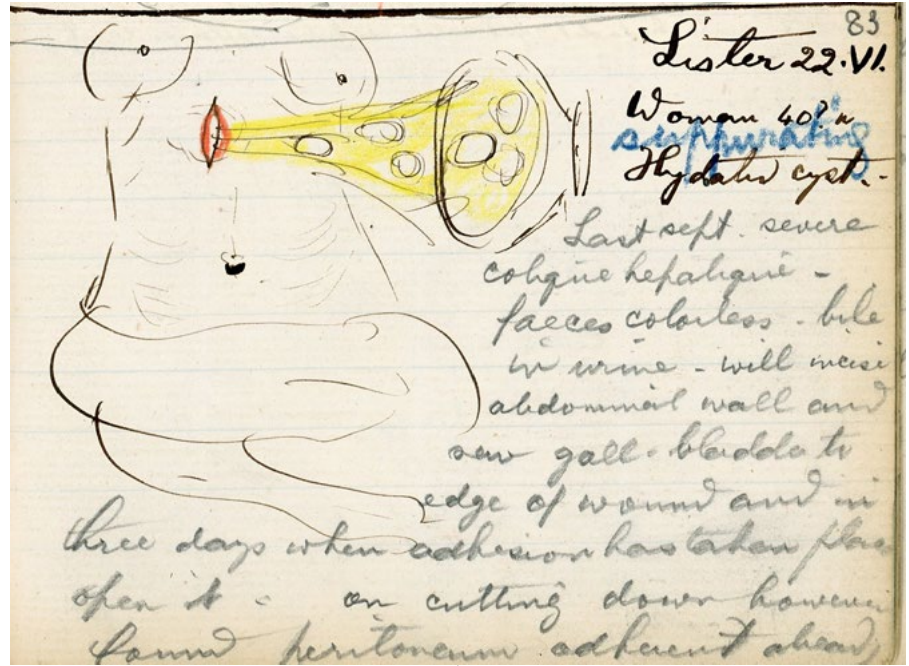 83
Lister 22.VI.
Woman 40? n
suppurating
Hydatid cyst.-
Last sept. severe
colique hepatique -
faeces colorless - bile
in urine - will incise
abdominal wall and
sew gall-bladder to
edge of wound and in
three days when adhesion has taken place
open it - on cutting down however
found peritoneum adherent already